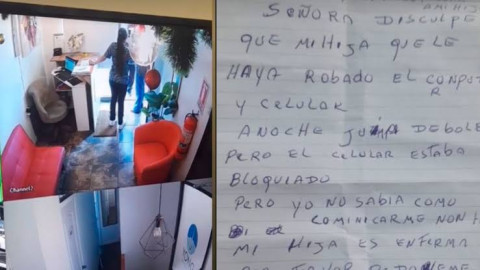 Channel1
A MI HIJA
SEÑORA DISCULPE
QUE MI HIJA QUE LE
HAYA ROBADO EL CONPUT
R
Y CELULAR
ANOCHE DEBOLE
PERO EL CELULAR ESTABA
BLOQUIADO
PERO YO NO SABIA COMO
COMINICARME NON
MI HIJA ES ENFERMA
POR FAVOR